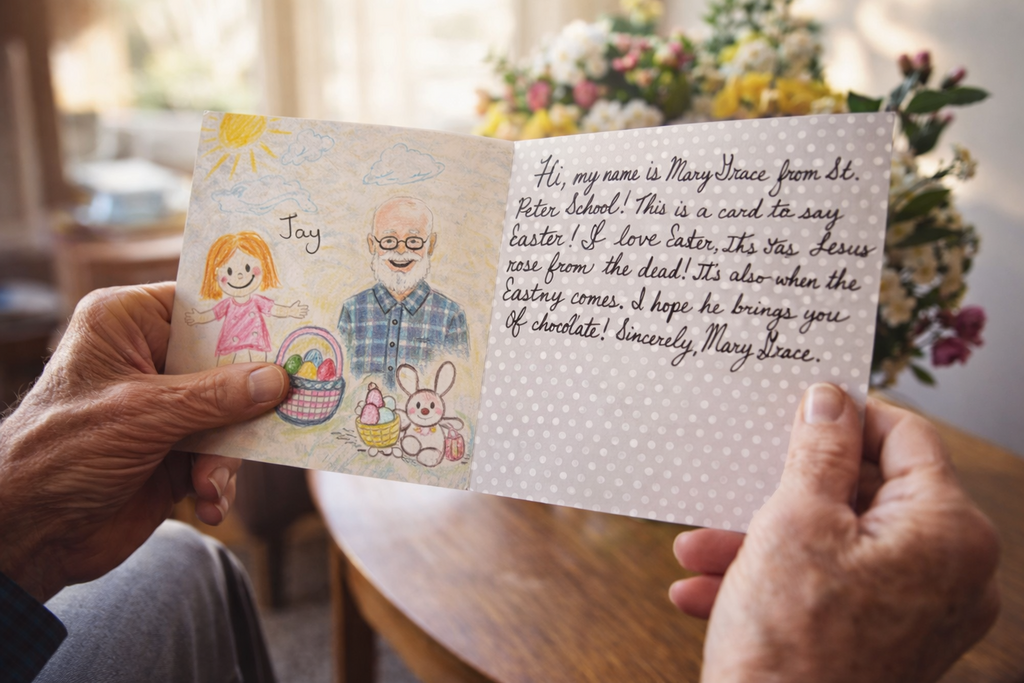 Jay
Hi, my name is Mary Grace from St.
Peter School! This is a card to say
Easter! I love Easter, It's Jesus
rose from the dead! It's also when the
Eastny comes. I hope he brings you
Of chocolate! Sincerely, Mary Grace.